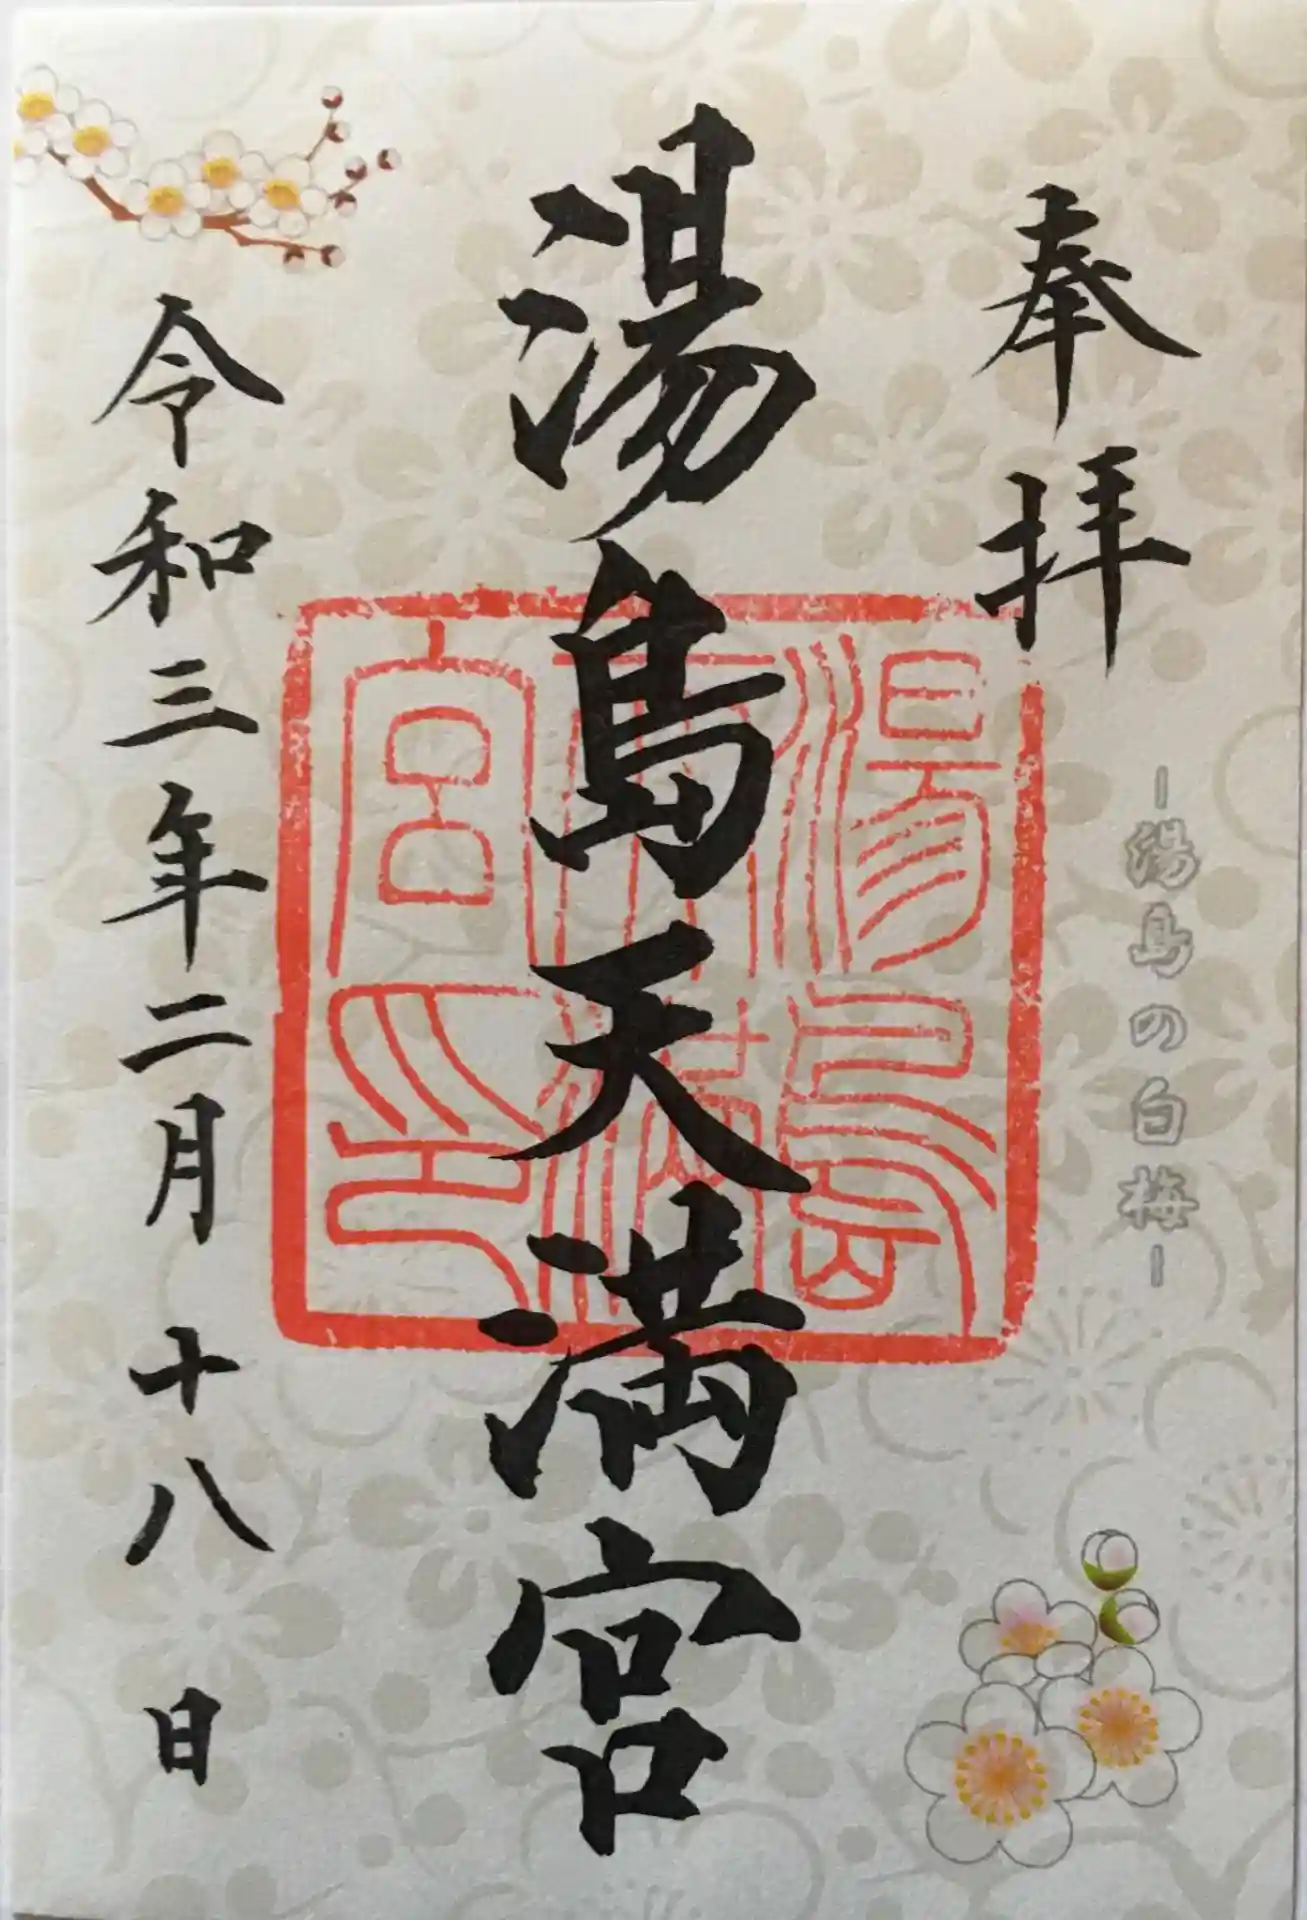 奉拝
-湯島の白梅-
湯島天満宮
湯島天満宮印
令和三年二月十八日